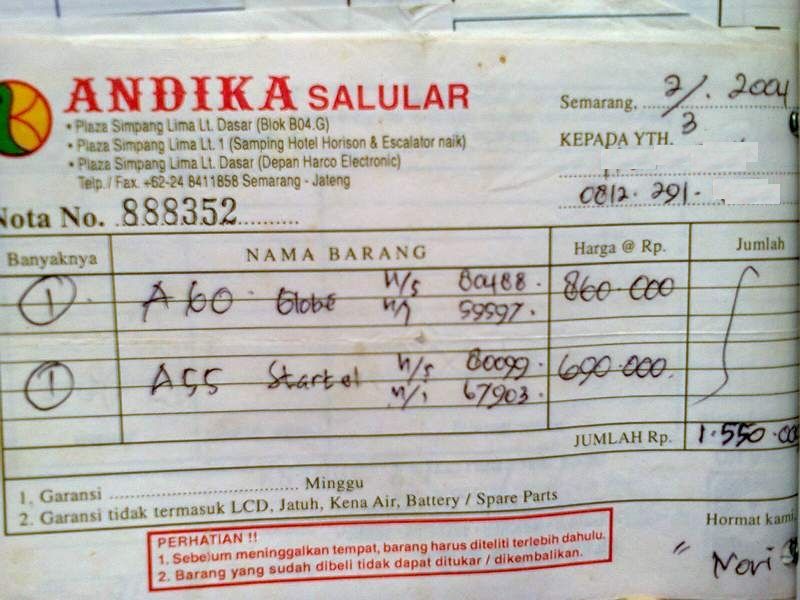 ANDIKA SALULAR
• Plaza Simpang Lima Lt. Dasar (Blok B04.G)
• Plaza Simpang Lima Lt. 1 (Samping Hotel Horison & Escalator naik)
• Plaza Simpang Lima Lt. Dasar (Depan Harco Electronic)
Telp./ Fax. +62-24 8411858 Semarang - Jateng
Semarang, 2/3. 2004
KEPADA YTH.
0812. 291.
Nota No. 888352
Banyaknya NAMA BARANG Harga @ Rp. Jumlah
1 A60 Globe 80488. 860.000
59597.
1 A55 Startel 80099. 690.000.
67903.
JUMLAH Rp. 1.550.000
1. Garansi .................... Minggu
2. Garansi tidak termasuk LCD, Jatuh, Kena Air, Battery / Spare Parts
PERHATIAN !!
1. Sebelum meninggalkan tempat, barang harus diteliti terlebih dahulu.
2. Barang yang sudah dibeli tidak dapat ditukar / dikembalikan.
Hormat kami,
Novi